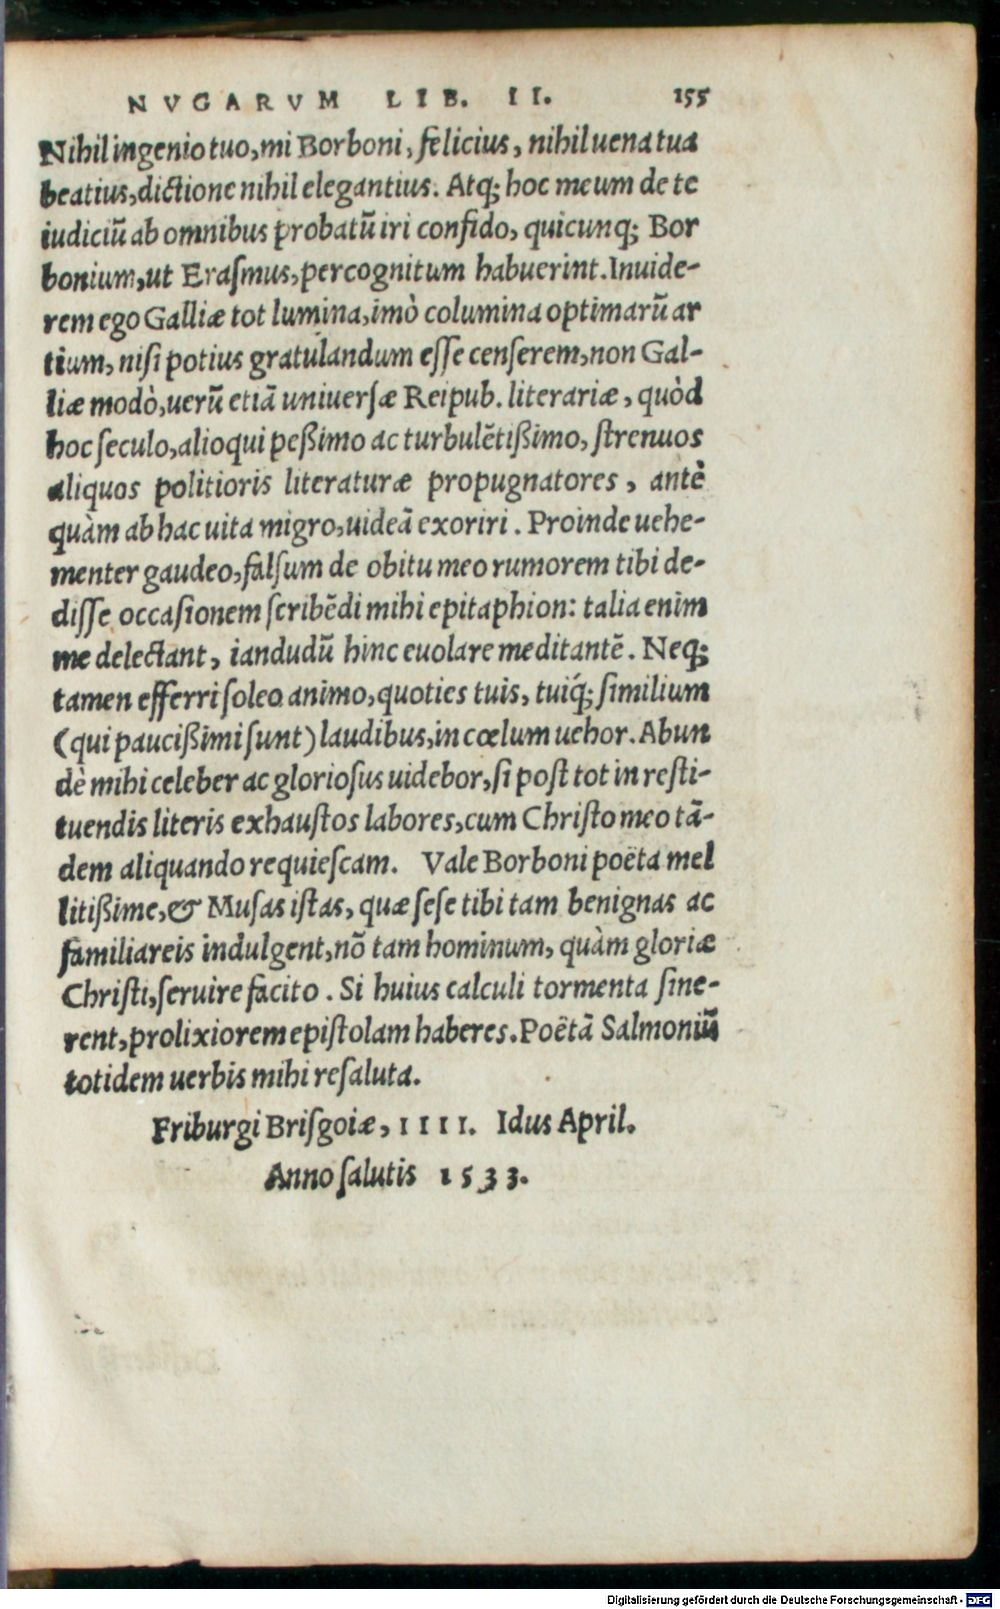 NVGARVM LIB. II. 155
Nihil ingenio tuo, mi Borboni, felicius, nihil uena tua
beatius, dictione nihil elegantius. Atq; hoc meum de te
iudiciũ ab omnibus probatũ iri confido, quicunq; Bor
bonium, ut Erasmus, percognitum habuerint. Inuide-
rem ego Galliæ tot lumina, imò columina optimarũ ar
tium, nisi potius gratulandum esse censerem, non Gal-
liæ modò, uerũ etiã uniuersæ Reipub. literariæ, quòd
hoc seculo, alioqui peßimo ac turbulẽtißimo, strenuos
aliquos politioris literaturæ propugnatores, antè
quàm ab hac uita migro, uideã exoriri. Proinde uehe-
menter gaudeo, falsum de obitu meo rumorem tibi de-
disse occasionem scribẽdi mihi epitaphion: talia enim
me delectant, iandudũ hinc euolare meditantẽ. Neq;
tamen efferri soleo animo, quoties tuis, tuiq́; similium
(qui paucißimi sunt) laudibus, in cœlum uehor. Abun
dè mihi celeber ac gloriosus uidebor, si post tot in resti-
tuendis literis exhaustos labores, cum Christo meo tã-
dem aliquando requiescam. Vale Borboni poëta mel
litißime, & Musas istas, quæ sese tibi tam benignas ac
familiareis indulgent, nõ tam hominum, quàm gloriæ
Christi, seruire facito. Si huius calculi tormenta sine-
rent, prolixiorem epistolam haberes. Poëtã Salmoniũ
totidem uerbis mihi resaluta.
Friburgi Brisgoiæ, IIII. Idus April.
Anno salutis 1533.
Digitalisierung gefördert durch die Deutsche Forschungsgemeinschaft - DFG